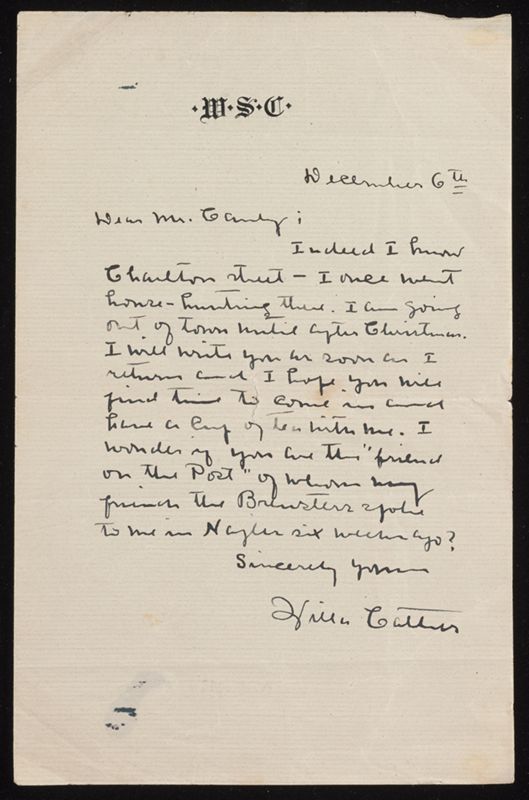 ·W·S·C·
December 6th
Dear Mr. Canby;
Indeed I know
Charlton street – I once went
house-hunting there. I am going
out of town until after Christmas.
I will write you as soon as I
return and I hope you will
find time to come in and
have a cup of tea with me. I
wonder if you are the "friend
on the Post" of whom my
friends the Brewsters spoke
to me in Naples six weeks ago?
Sincerely yours
Willa Cather